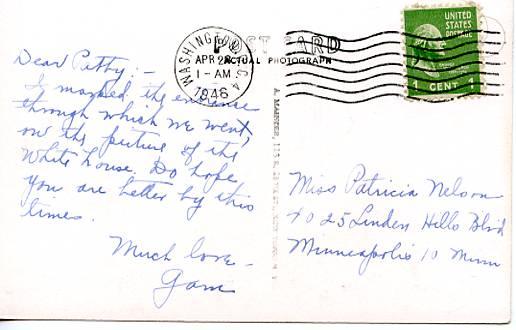 POST CARD
ACTUAL PHOTOGRAPH
WASHINGTON, D.C. 4
APR 28
1 - AM
1946
UNITED
STATES
POSTAGE
1 CENT 1
Dear Patty: -
I marked the entrance
through which we went,
on the picture of the
White House. Do hope
you are better by this
time.
Much love -
Gam
Miss Patricia Nelson
4025 Linden Hills Blvd
Minneapolis 10 Minn